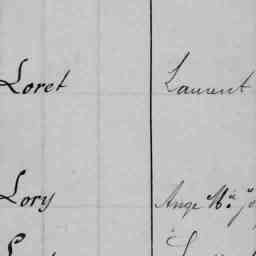 Loret Laurent
Lory Ange Mie